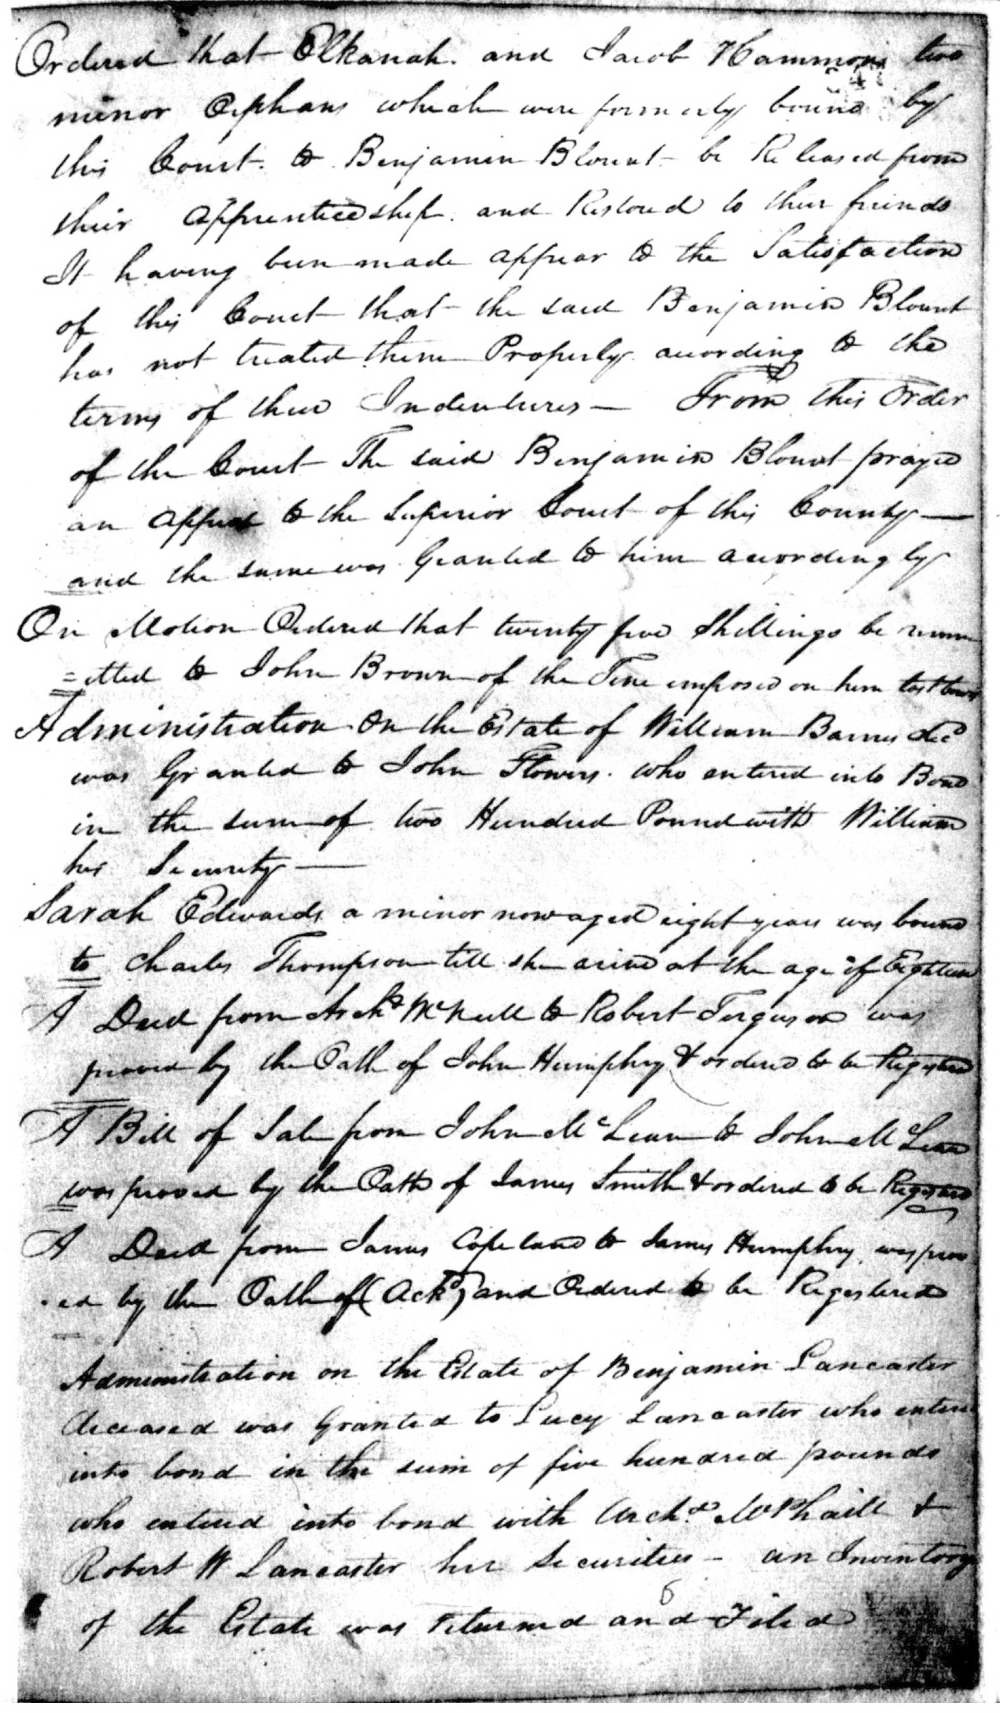 Ordered that Elkanah and Jacob Hammons two
minor Orphans which were formerly bound by
this Court to Benjamin Blount be Released from
their apprenticedship and Restored to their friends
It having been made appear to the Satisfaction
of this Court that the said Benjamin Blount
has not treated them Properly according to the
terms of their Indentures — From this Order
of the Court The said Benjamin Blount prayed
an appeal to the Superior Court of this County —
and the same was Granted to him accordingly
On Motion Ordered that twenty five Shillings be remm
=itted to John Brown of the Fine imposed on him last
Administration On the Estate of William Barnes decd
was Granted to John Flowers who entered into Bond
in the sum of two Hundred Pound with William
his Security —
Sarah Edwards a minor now aged eight years was bound
to Charles Thompson till she arive at the age of Eighteen
A Deed from Archd McNeill to Robert Ferguson was
proved by the Oath of John Humphry & ordered to be Registered
A Bill of Sale from John McLean to John McLean
was proved by the Oath of James Smith & ordered to be Registered
A Deed from James Copeland to James Humphry was prov
ed by the Oath of (Ackd) and Ordered to be Registered
Administration on the Estate of Benjamin Lancaster
deceased was Granted to Lucy Lancaster who entered
into bond in the sum of five hundred pounds
who entered into bond with Archd McPhaill &
Robert W Lancaster her Securities — an Inventory
of the Estate was returned and Filed